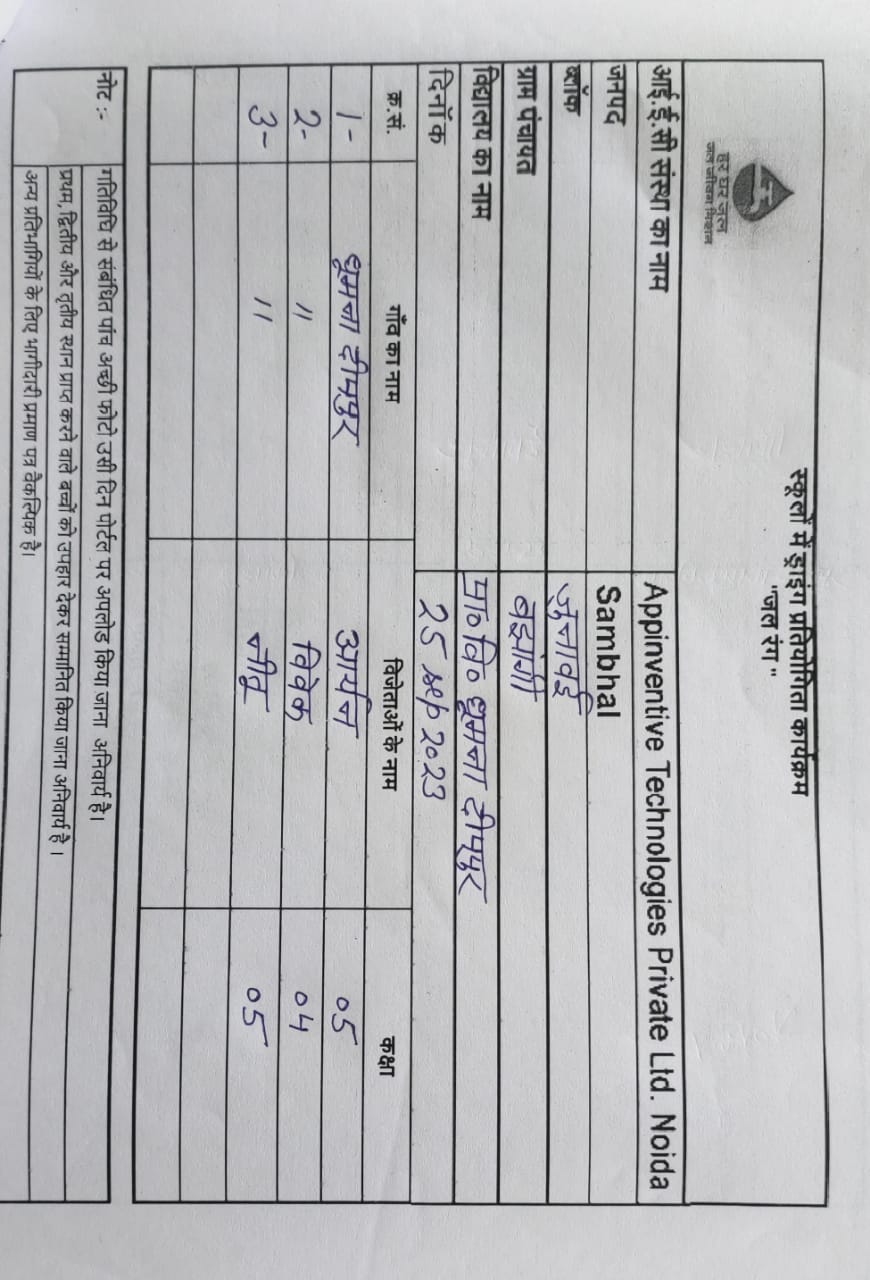 हर घर जल
जल जीवन मिशन
स्कूलों में ड्राइंग प्रतियोगिता कार्यक्रम
"जल रंग"
आई.ई.सी संस्था का नाम Appinventive Technologies Private Ltd. Noida
जनपद Sambhal
ब्लॉक जुनावई
ग्राम पंचायत
विद्यालय का नाम प्रा०वि० धूमना दीपपुर
दिनाँक 25 sep 2023
क्र.सं. गाँव का नाम विजेताओं के नाम कक्षा
1- धूमना दीपपुर आर्यन 05
2- " विवेक 04
3- " नीतू 05
नोट :- गतिविधि से संबंधित पांच अच्छी फोटो उसी दिन पोर्टल पर अपलोड किया जाना अनिवार्य है।
प्रथम, द्वितीय और तृतीय स्थान प्राप्त करने वाले बच्चों को उपहार देकर सम्मानित किया जाना अनिवार्य है।
अन्य प्रतिभागियों के लिए भागीदारी प्रमाण पत्र वैकल्पिक है।